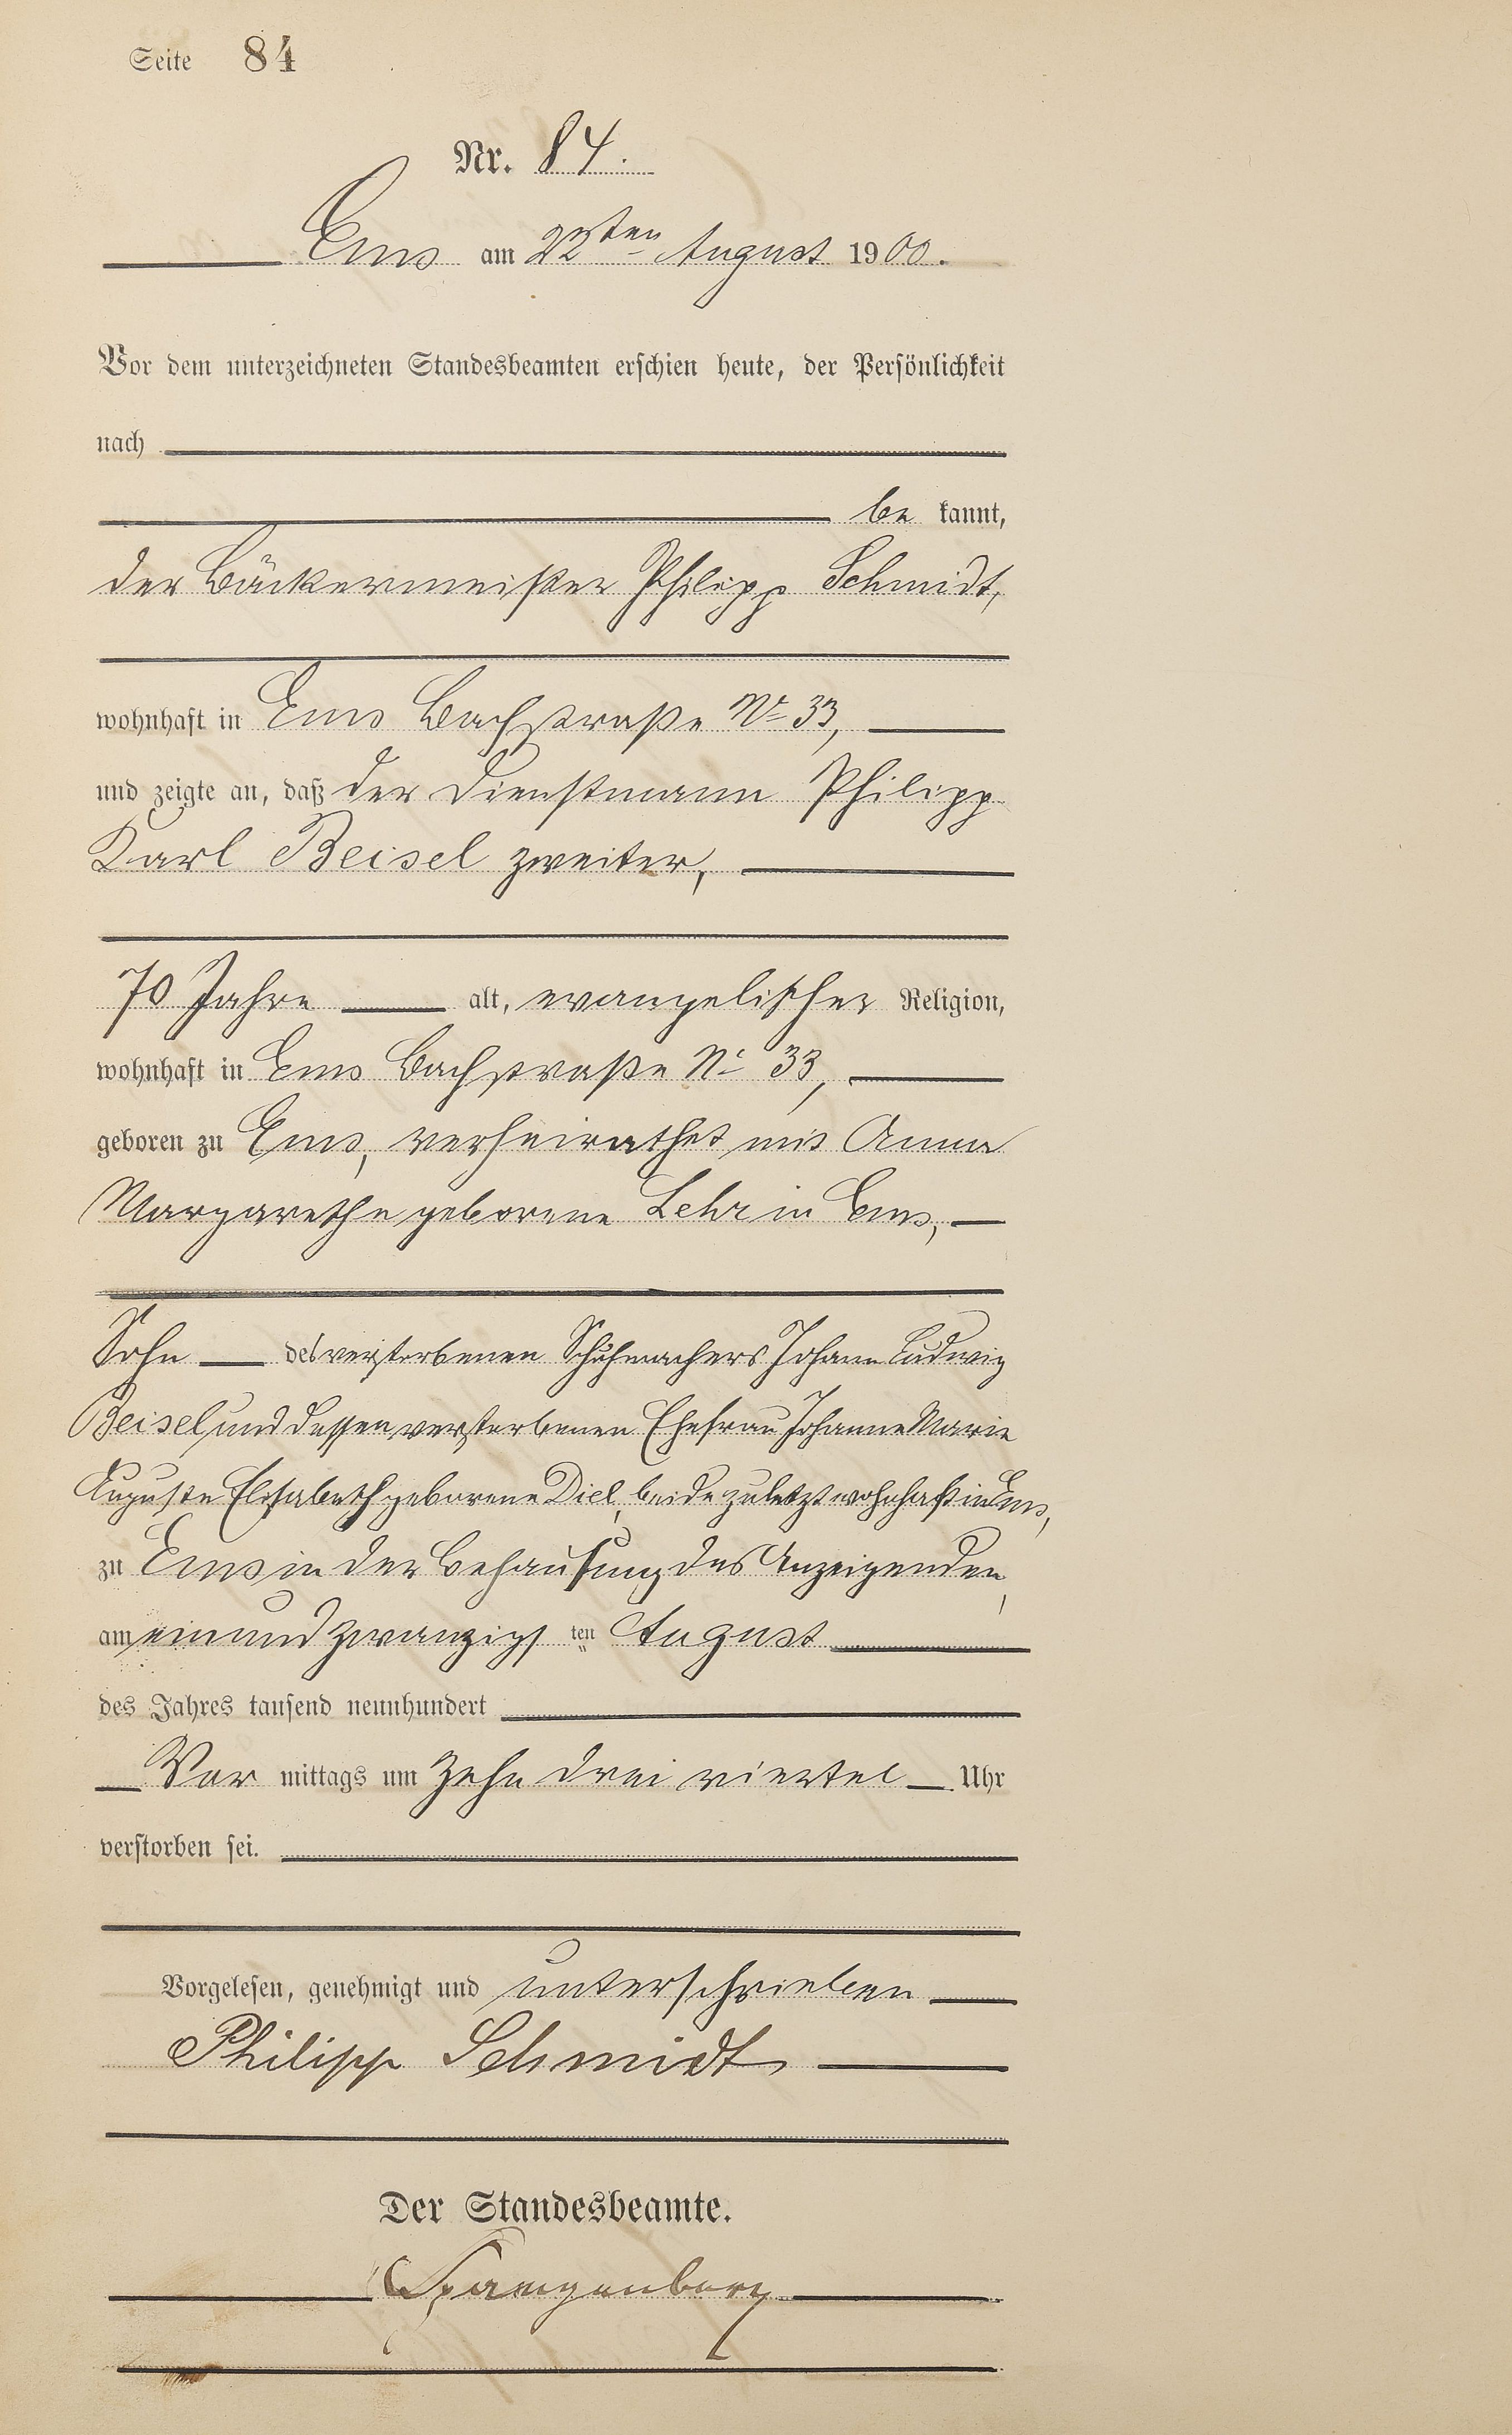 Seite 84
Nr. 84.
Ems am 22sten August 1900.
Vor dem unterzeichneten Standesbeamten erschien heute, der Persönlichkeit
nach
be kannt,
der Bäckermeister Philipp Schmidt,
wohnhaft in Ems Bachstraße No 33,
und zeigte an, daß der Dienstmann Philipp
Karl Beisel zweiter,
70 Jahre alt, evangelischer Religion,
wohnhaft in Ems Bachstraße No 33,
geboren zu Ems, verheirathet mit Anna
Margarethe geborene Lehr in Ems,
Sohn des verstorbenen Schuhmachers Johann Ludwig
Beisel und dessen verstorbenen Ehefrau Johanne Marie
Auguste Elisabeth geborene Diel, beide zuletzt wohnhaft in Ems,
zu Ems in der Behausung des Anzeigenden,
am einundzwanzigs ten August
des Jahres tausend neunhundert
Vor mittags um zehn drei viertel Uhr
verstorben sei.
Vorgelesen, genehmigt und unterschrieben
Philipp Schmidt
Der Standesbeamte.
Spangenberg